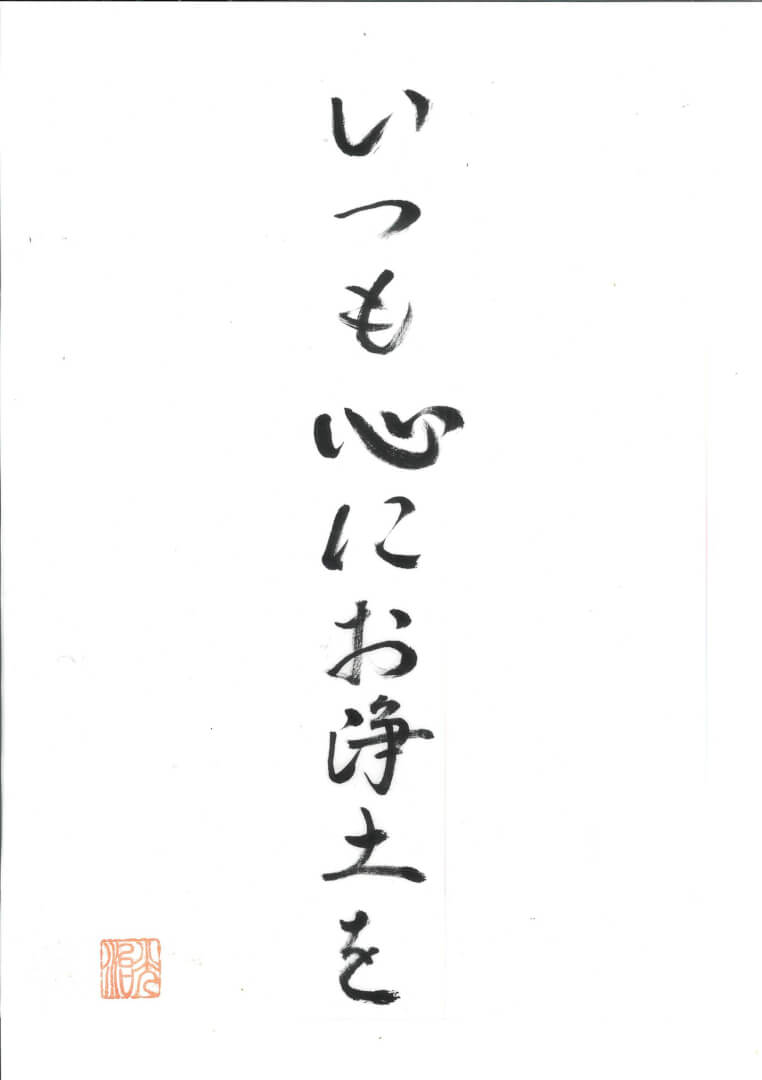 いつも心にお浄土を